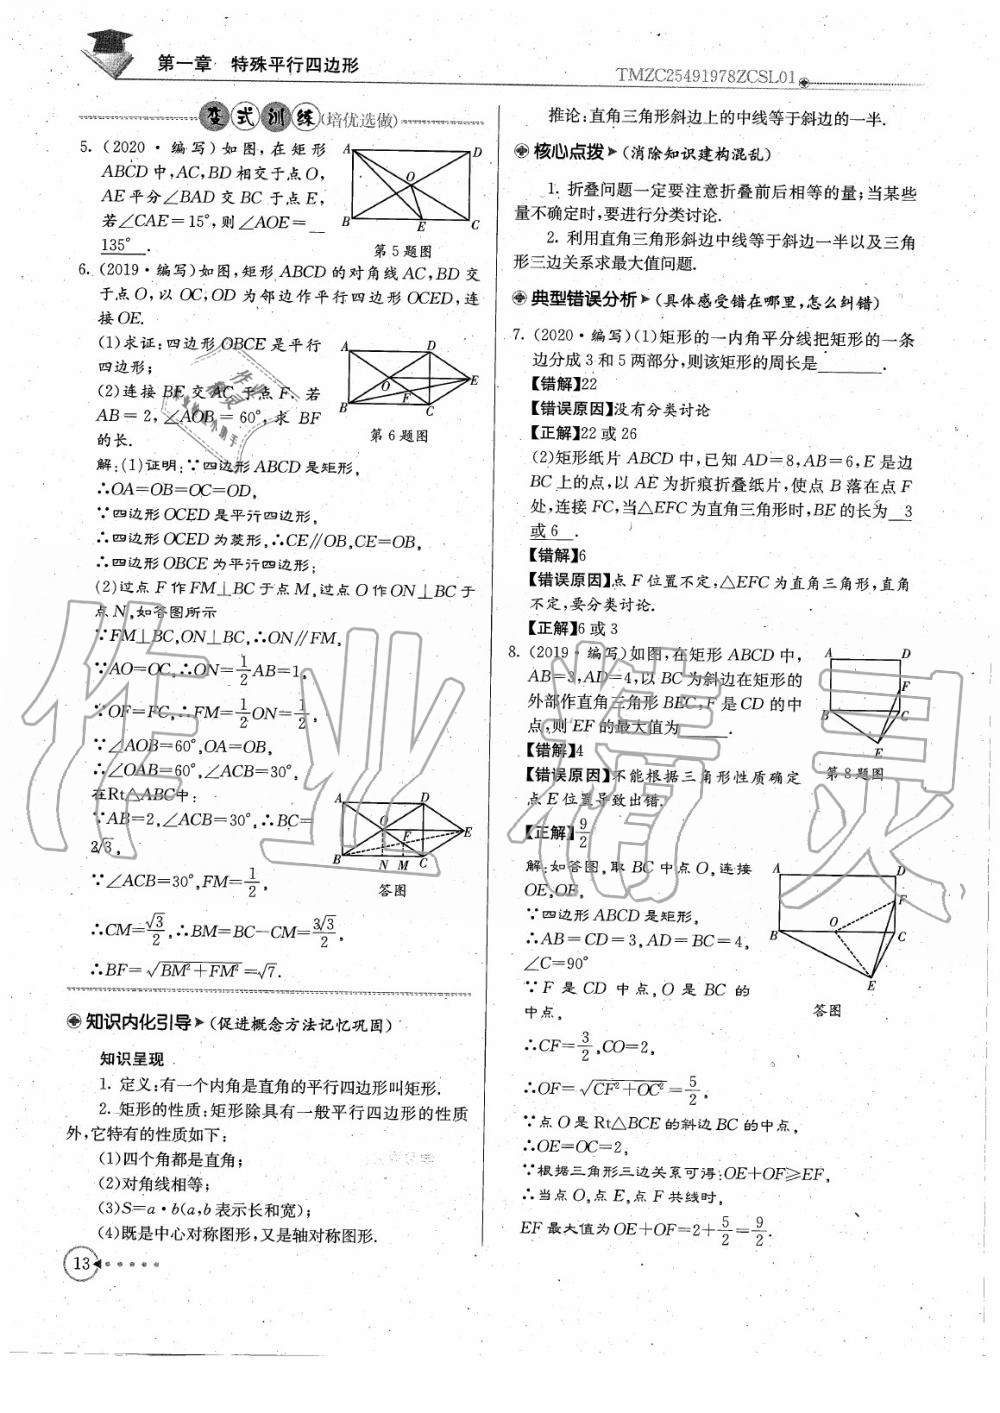 第一章 特殊平行四边形
TMZC25491978ZCSL01
变式训练(培优选做)
5. (2020·编写)如图,在矩形
ABCD中,AC,BD相交于点O,
AE平分∠BAD交BC于点E,
若∠CAE=15°,则∠AOE=
135° .
A D O B E C
第5题图
6. (2019·编写)如图,矩形ABCD的对角线AC,BD交
于点O,以OC,OD为邻边作平行四边形OCED,连
接OE.
(1)求证:四边形OBCE是平行
四边形;
(2)连接BE交AC于点F.若
AB=2,∠AOB=60°,求BF
的长.
A D O E F B C
第6题图
解:(1)证明:∵四边形ABCD是矩形,
∴OA=OB=OC=OD,
∵四边形OCED是平行四边形,
∴四边形OCED为菱形,∴CE∥OB,CE=OB,
∴四边形OBCE为平行四边形;
(2)过点F作FM⊥BC于点M,过点O作ON⊥BC于
点N,如答图所示
∵FM⊥BC,ON⊥BC,∴ON∥FM,
∵AO=OC,∴ON=1/2AB=1,
∵OF=FC,∴FM=1/2ON=1/2,
∵∠AOB=60°,OA=OB,
∴∠OAB=60°,∠ACB=30°,
在Rt△ABC中:
∵AB=2,∠ACB=30°,∴BC=
2√3,
∵∠ACB=30°,FM=1/2,
∴CM=√3/2,∴BM=BC-CM=3√3/2,
∴BF=√(BM²+FM²)=√7.
A D O F E B N M C
答图
知识内化引导(促进概念方法记忆巩固)
知识呈现
1. 定义:有一个内角是直角的平行四边形叫矩形.
2. 矩形的性质:矩形除具有一般平行四边形的性质
外,它特有的性质如下:
(1)四个角都是直角;
(2)对角线相等;
(3)S=a·b(a,b表示长和宽);
(4)既是中心对称图形,又是轴对称图形.
13
推论:直角三角形斜边上的中线等于斜边的一半.
核心点拨(消除知识建构混乱)
1. 折叠问题一定要注意折叠前后相等的量;当某些
量不确定时,要进行分类讨论.
2. 利用直角三角形斜边中线等于斜边一半以及三角
形三边关系求最大值问题.
典型错误分析(具体感受错在哪里,怎么纠错)
7. (2020·编写)(1)矩形的一内角平分线把矩形的一条
边分成3和5两部分,则该矩形的周长是________.
【错解】22
【错误原因】没有分类讨论
【正解】22或26
(2)矩形纸片ABCD中,已知AD=8,AB=6,E是边
BC上的点,以AE为折痕折叠纸片,使点B落在点F
处,连接FC,当△EFC为直角三角形时,BE的长为 3
或6 .
【错解】6
【错误原因】点F位置不定,△EFC为直角三角形,直角
不定,要分类讨论.
【正解】6或3
8. (2019·编写)如图,在矩形ABCD中,
AB=3,AD=4,以BC为斜边在矩形的
外部作直角三角形BEC,F是CD的中
点,则EF的最大值为______.
【错解】4
【错误原因】不能根据三角形性质确定
点E位置导致出错.
A D F B C E
第8题图
【正解】9/2
解:如答图,取BC中点O,连接
OE,OF,
∵四边形ABCD是矩形,
∴AB=CD=3,AD=BC=4,
∠C=90°
∵F是CD中点,O是BC的
中点,
∴CF=3/2,CO=2,
∴OF=√(CF²+OC²)=5/2,
A D F O B C E
答图
∵点O是Rt△BCE的斜边BC的中点,
∴OE=OC=2,
∵根据三角形三边关系可得:OE+OF≥EF,
∴当点O,点E,点F共线时,
EF最大值为OE+OF=2+5/2=9/2.
作业精灵